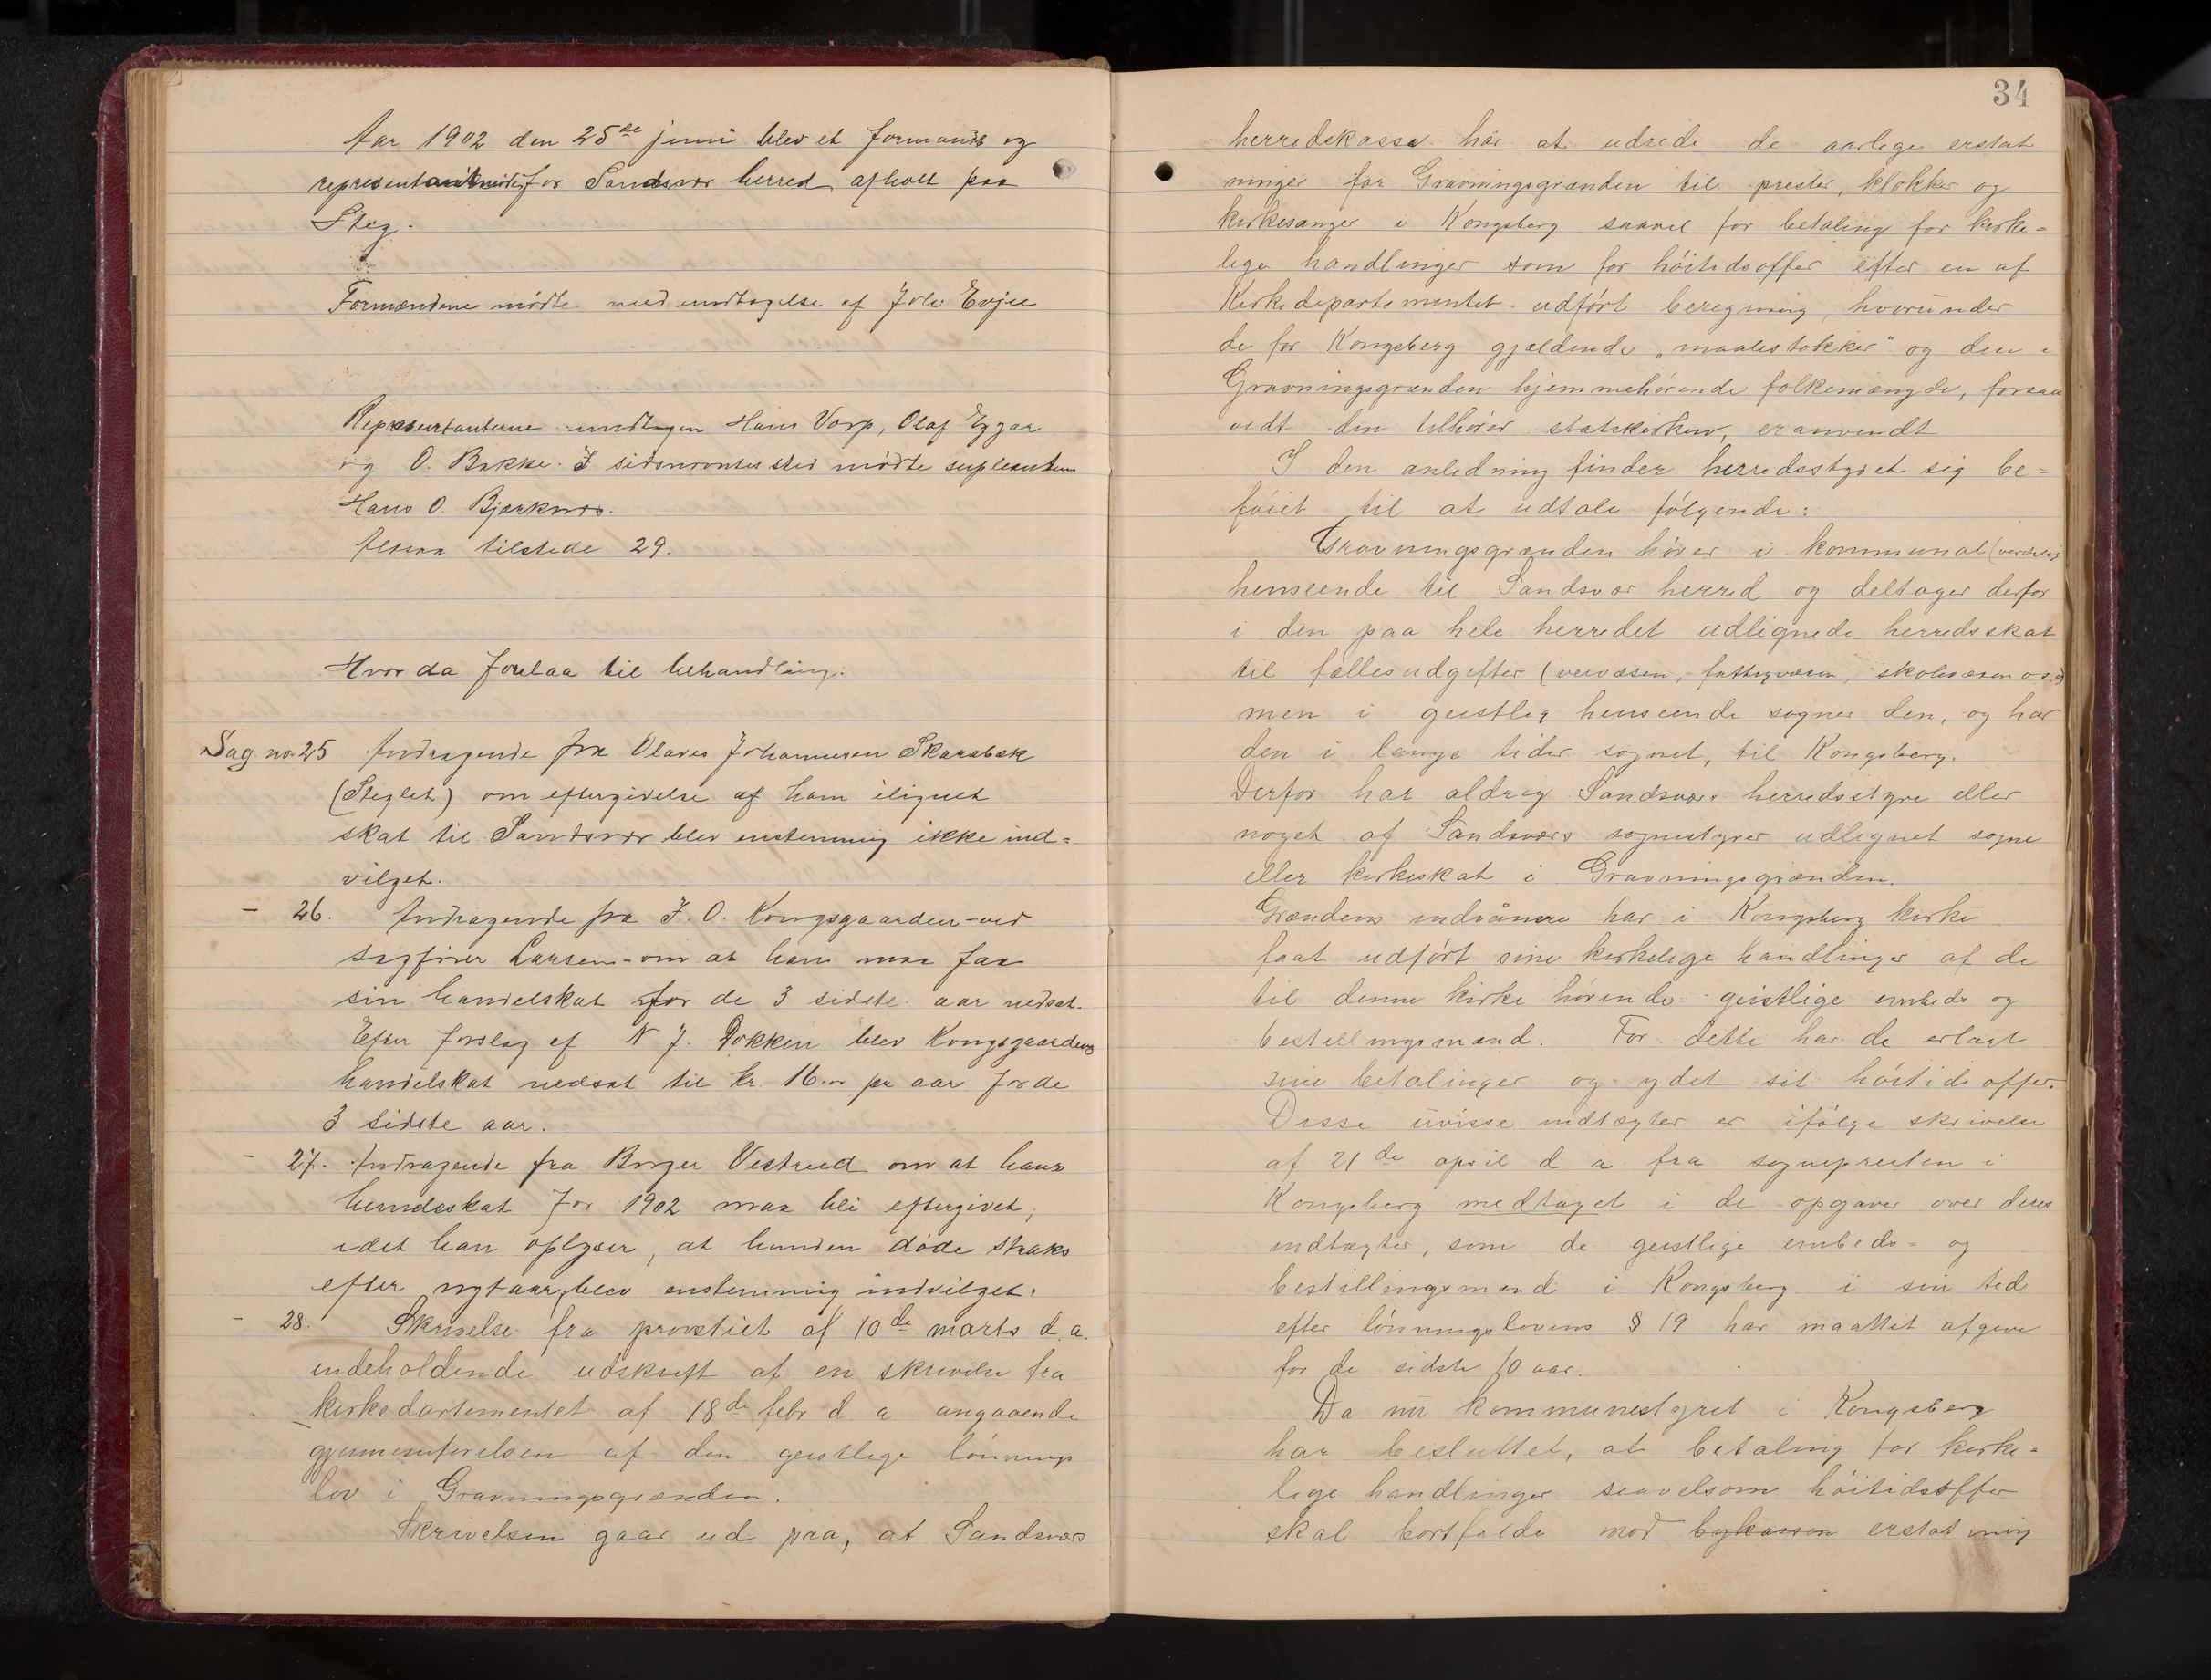 Aar 1902 den 25de juni blev et formands og
representantmöde for Sandsvær herred afholt paa
Steg.
Formændene mödte med undtagelse af Jolv Evju
Repræsentanterne undtagen Hans Vorp, Olaf Eggar
og O. Bakke. I sidsnævntes sted mödte supleanten
Hans O. Bjørknes.
Altsaa tilstede 29.
Hvor da forelaa til behandling:
Sag no 25 Andragende fra Olaves Johannesen Skarabæk
(Steglet) om eftergivelse af ham ilignet
skat til Sandsvær blev enstemmig ikke ind=
vilget.
- 26. Andragende fra J. O. Kongsgaarden - ved
sagförer Larsen - om at han maa faa
sin handelskat for de 3 sidste aar nedsat.
Efter forslag af N J. Dokken blev Kongsgaardens
handelskat nedsat til kr. 16.00 pr aar for de
3 sidste aar.
- 27. Andragende fra Borger Vestrud om at hans
hundeskat for 1902 maa bli eftergivet,
idet han oplyser, at hunden døde straks
efter nytaar, blev enstemmig indvilget.
- 28. Skrivelse fra provstiet af 10de marts d. a.
indeholdende udskrift af en skrivelse fra
kirkedartementet af 18de febr d a angaaende
gjennemförelsen af den geistlige lönnings
lov i Gravningsgrænden.
Skrivelsen gaar ud paa, at Sandsværs
34
herredskasse har at udrede de aarlige erstat
ninger for Gravningsgrænden til prester, klokker og
kirkesanger i Kongsberg saavel for betaling for kirke=
lige handlinger som for höitidsoffer efter en af
Kirkedepartementet udfört beregning, hvorunder
de for Kongsberg gjældende „maalestokker" og den i
Gravningsgrænden hjemmehörende folkemængde, forsaa
vidt den tilhörer statskirken, er anvendt
I den anledning finder herredsstyret sig be=
föiet til at udtale fölgende:
Gravningsgrænden hörer i kommunal (verdslig)
henseende til Sandsvær herred og deltager derfor
i den paa hele herredet udlignede herredsskat
til fællesudgifter (veivæsen, fattigvæsen, skolevæsen o.s.v)
men i geistlig henseende sogner den, og har
den i lange tider sognet, til Kongsberg.
Derfor har aldrig Sandsværs herredsstyre eller
noget af Sandsværs sognestyrer udlignet sogne
eller kirkeskat i Gravningsgrænden.
Grændens indvånere har i Kongsberg kirke
faat udfört sine kirkelige handlinger af de
til denne kirke hörende geistlige embeds og
bestillingsmænd. For dette har de erlagt
sine betalinger og ydet sit höitidsoffer.
Disse uvisse indtægter er ifölge skrivelse
af 21de april d a fra sognepresten i
Kongsberg medtaget i de opgaver over deres
indtægter, som de geistlige embeds= og
bestillingsmænd i Kongsberg i sin tid
efter lönningslovens § 19 har maattet afgive
for de sidste 10 aar.
Da nu kommunestyret i Kongsberg
har besluttet, at betaling for kirke=
lige handlinger saavelsom höitidsoffer
skal bortfalde mod bykassen erstatning